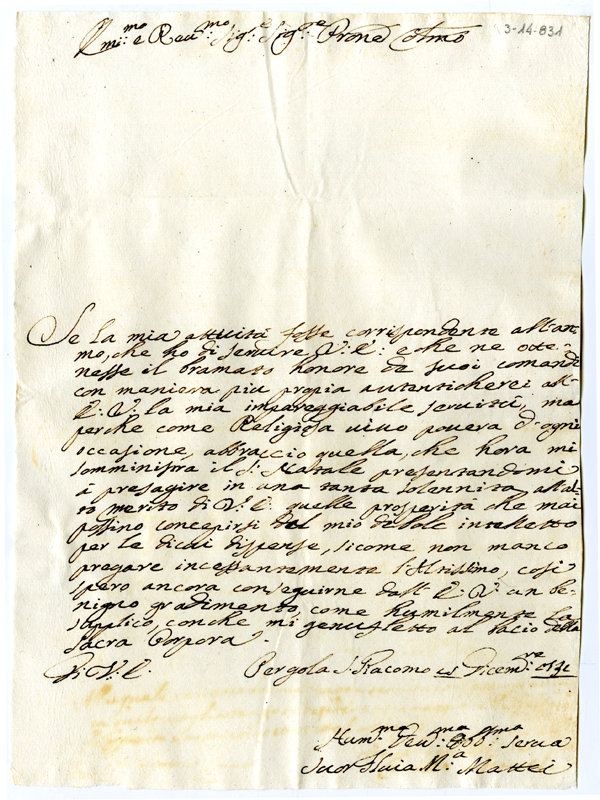 Ill.mo e Reu.mo Sig.e Sig.re Prone Colmo
3-14-831
Se la mia attiuità fosse corrispondente all'ani-
mo, che ho di seruire V. E. e che ne otte-
nesse il bramato honore de suoi comandi
con maniera più propia autenticherei all'
E. V. la mia impareggiabile seruitù, ma
perche come Religiosa uiuo pouera d'ogni
occasione, abbraccio quella, che hora mi
somministra il S. Natale presentandomi
à presagire in una tanta solennità all'al-
to merito di V. E. quelle prosperità che mai
possino concepirsi dal mio debole intelletto
per le di cui dispense, sicome non manco
pregare incessantemente l'Altissimo, così
spero ancora conseguirne dall' E. V. un be-
nigno gradimento, come humilmente la
supplico, con che mi genufletto al bacio della
Sacra Porpora.
Di V. E.
Pergola S. Giacomo Dicem.re
Hum.ma Deu.ma Obb.ma Serua
Suor M.a Mattei